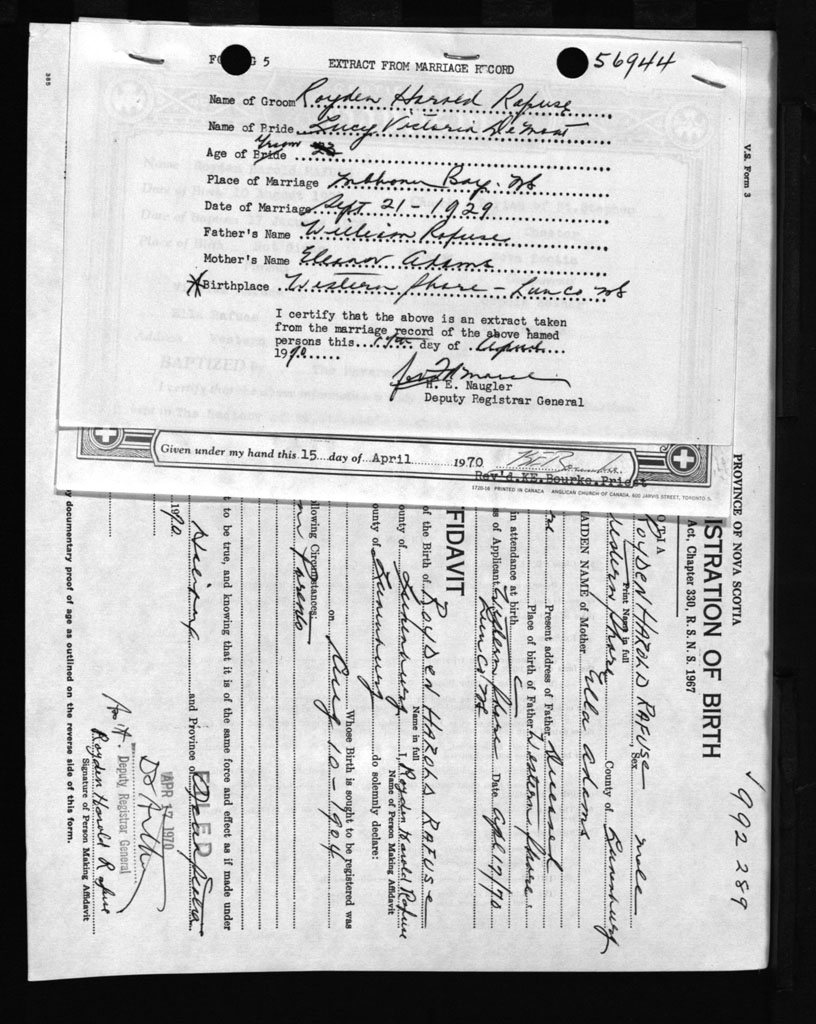 56944
EXTRACT FROM MARRIAGE RECORD
Name of Groom Royden Harold Rafuse
Name of Bride Lucy Victoria DeMont
Groom
Age of Bride
Place of Marriage Mahone Bay. NS
Date of Marriage Sept 21 - 1929
Father's Name William Rafuse
Mother's Name Eleanor Adams
Birthplace Western Shore - Lun Co NS
I certify that the above is an extract taken
from the marriage record of the above named
persons this day of April
1970
H. E. Naugler
Deputy Registrar General
Given under my hand this 15 day of April 1970
Rev'd. KE. Bourke, Priest
1720-16 PRINTED IN CANADA ANGLICAN CHURCH OF CANADA, 600 JARVIS STREET, TORONTO 5.
V.S. Form 3
992 289
PROVINCE OF NOVA SCOTIA
ISTRATION OF BIRTH
Act, Chapter 330, R. S. N. S. 1967
ROYDEN HAROLD RAFUSE Sex male
Print Name in full
Western Shore County of Lunenburg
AIDEN NAME of Mother Ella Adams
Present address of Father Deceased
Place of birth of Father Western Shore
in attendance at birth
ss of Applicant Western Shore Date April 17/70
Lun Co NS
FIDAVIT
of the Birth of ROYDEN HAROLD RAFUSE
Name in full
ounty of Lunenburg I, Royden Harold Rafuse
Name of Person Making Affidavit
ounty of Lunenburg do solemnly declare:
Whose Birth is sought to be registered was
on Aug 10 - 1904
llowing Circumstances:
Parents
t to be true, and knowing that it is of the same force and effect as if made under
Halifax and Province of Nova Scotia
1970
APR 17 1970
Deputy Registrar General
Royden Harold Rafuse
Signature of Person Making Affidavit
y documentary proof of age as outlined on the reverse side of this form.